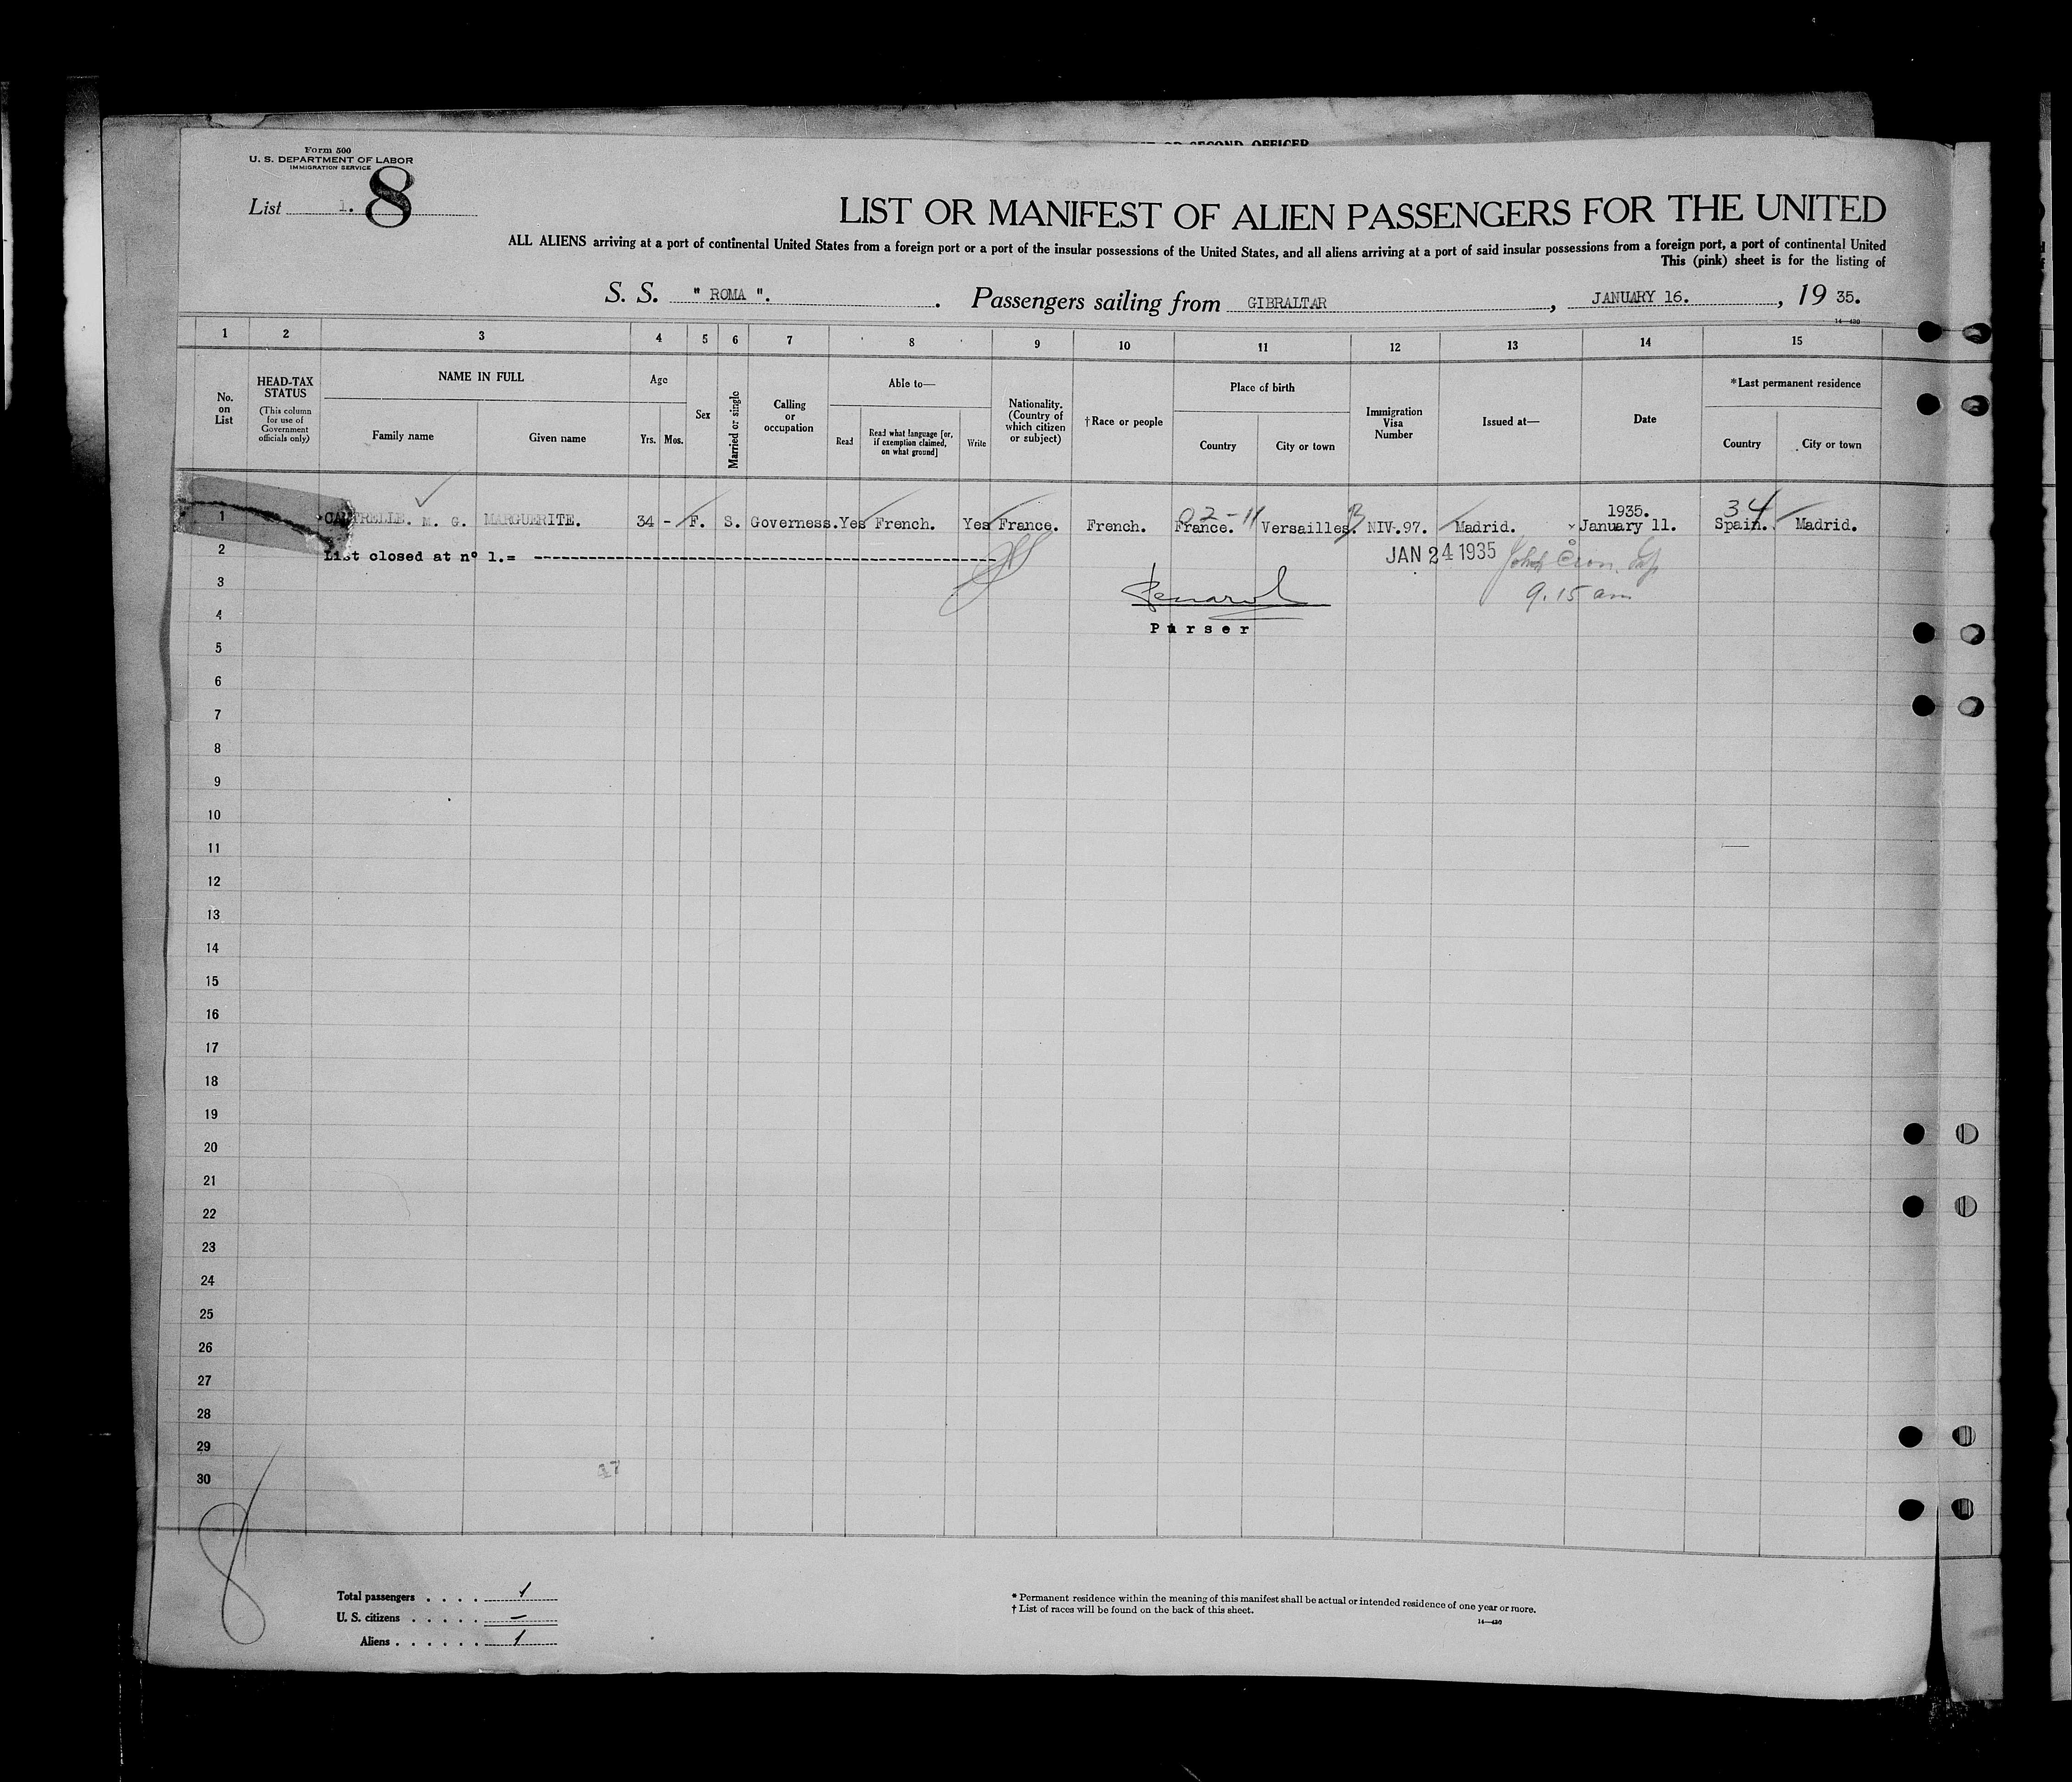 OR SECOND OFFICER
Form 500
U. S. DEPARTMENT OF LABOR
IMMIGRATION SERVICE
List 1. 8
LIST OR MANIFEST OF ALIEN PASSENGERS FOR THE UNITED
ALL ALIENS arriving at a port of continental United States from a foreign port or a port of the insular possessions of the United States, and all aliens arriving at a port of said insular possessions from a foreign port, a port of continental United
This (pink) sheet is for the listing of
S. S. " ROMA ". Passengers sailing from GIBRALTAR, JANUARY 16., 19 35.
14—430
1 2 3 4 5 6 7 8 9 10 11 12 13 14 15
No. on List
HEAD-TAX STATUS (This column for use of Government officials only)
NAME IN FULL
Family name Given name
Age
Yrs. Mos.
Sex
Married or single
Calling or occupation
Able to—
Read Read what language [or, if exemption claimed, on what ground] Write
Nationality. (Country of which citizen or subject)
† Race or people
Place of birth
Country City or town
Immigration Visa Number
Issued at—
Date
*Last permanent residence
Country City or town
02-11 1935. 34
1 M. G. MARGUERITE. 34 - F. S. Governess. Yes French. Yes France. French. France. Versailles. NIV.97. Madrid. January 11. Spain. Madrid.
2 List closed at nº 1.= JAN 24 1935
3 9.15 am
4 Purser
5
6
7
8
9
10
11
12
13
14
15
16
17
18
19
20
21
22
23
24
25
26
27
28
29
30
47
8
Total passengers . . . . 1
U. S. citizens . . . . . —
Aliens . . . . . . 1
* Permanent residence within the meaning of this manifest shall be actual or intended residence of one year or more.
† List of races will be found on the back of this sheet.
14—430